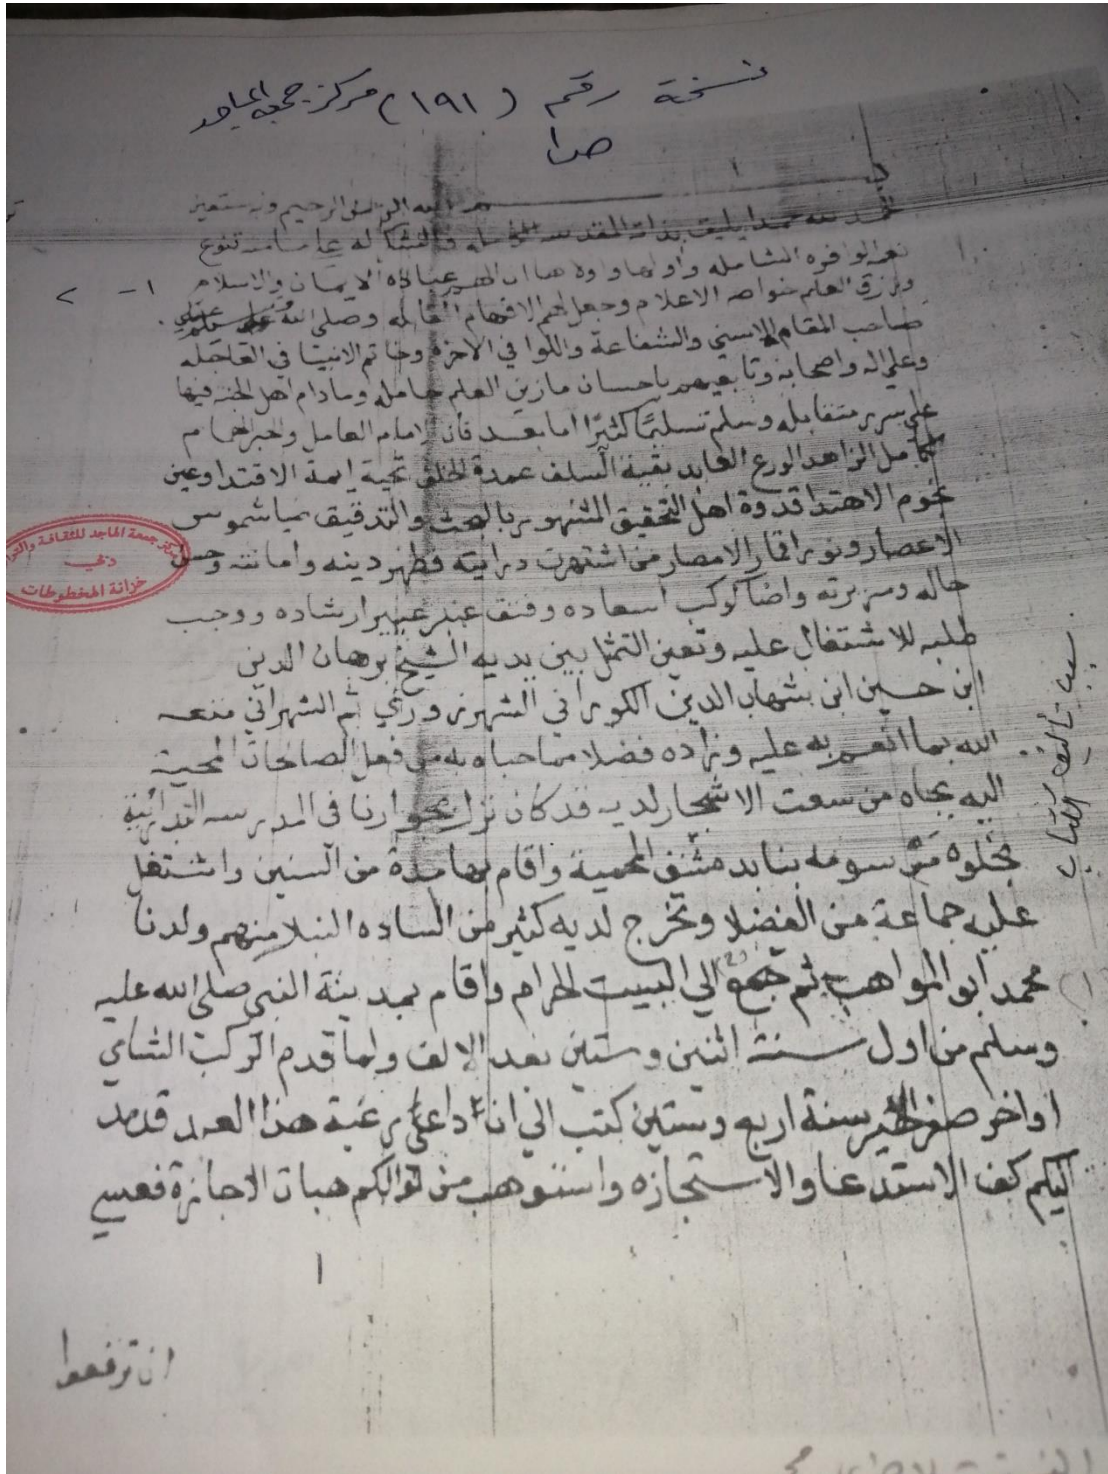 نسخة رقم (١٩١) مركز جمعة الماجد
ص١
الرحيم وبه نستعين
الحمد لله حمدا يليق بذاته المقدسه الكامله تتنوع
نعمه الوافره الشامله واولها واولاها ان الهم عباده الايمان والاسلام
ورزق العلم خواصه الاعلام وجعل لهم الافهام وصلى الله
صاحب المقام الاسنى والشفاعة واللوا في الاخرة وخاتم الانبيا في العاجله
وعلى اله واصحابه وتابعيهم باحسان مازين العلم حامله ومادام اهل الجنه فيها
على سرر متقابله وسلم تسليمًا كثيرًا اما بعد فان الامام العامل والحبر الهمام
الكامل الزاهد الورع العابد بقية السلف عمدة الخلف ايمة الاقتدا وعين
نجوم الاهتدا قدوة اهل التحقيق المشهور بالبحث والتدقيق شموس
الاعصار ونور اقمار الامصار من اشتهرت درايته فظهر دينه وامانته وحسن
حاله وسريرته واضا كوكب اسعاده وفتق عنبر عبير ارشاده ووجب
طلبه للاشتغال عليه وتعين التمثل بين يديه الشيخ برهان الدين
ابن حسين ابن شهاب الدين الكوراني الشهرزوري ثم الشهراني متعه
الله بما انعم به عليه وزاده فضلا مما حباه به من فعل الصالحات المحببة
اليه بجاه من سعت الاشجار لديه قد كان نزل بجوارنا في المدرسه البدرائية
بخلوة مرسومه بنا بدمشق المحمية واقام بها مدة من السنين واشتغل
عليه جماعة من الفضلا وتخرج لديه كثير من الساده النبلا منهم ولدنا
محمد ابو المواهب ثم الى البيت الحرام واقام بمدينة النبي صلى الله عليه
وسلم من اول سنة اثنين وستين بعد الالف ولما قدم الركب الشامي
اواخر صفر الخير سنة اربع وستين كتب الي رغبة هذا العبد قد مد
اليكم كف الاستدعا والاستجازه واستوهب من نوالكم هبات الاجازة فعسى
١
ان ترفعوا
سبب تأليف الكتاب
١ - ٢
مركز جمعة الماجد للثقافة والتراث
دبي
خزانة المخطوطات